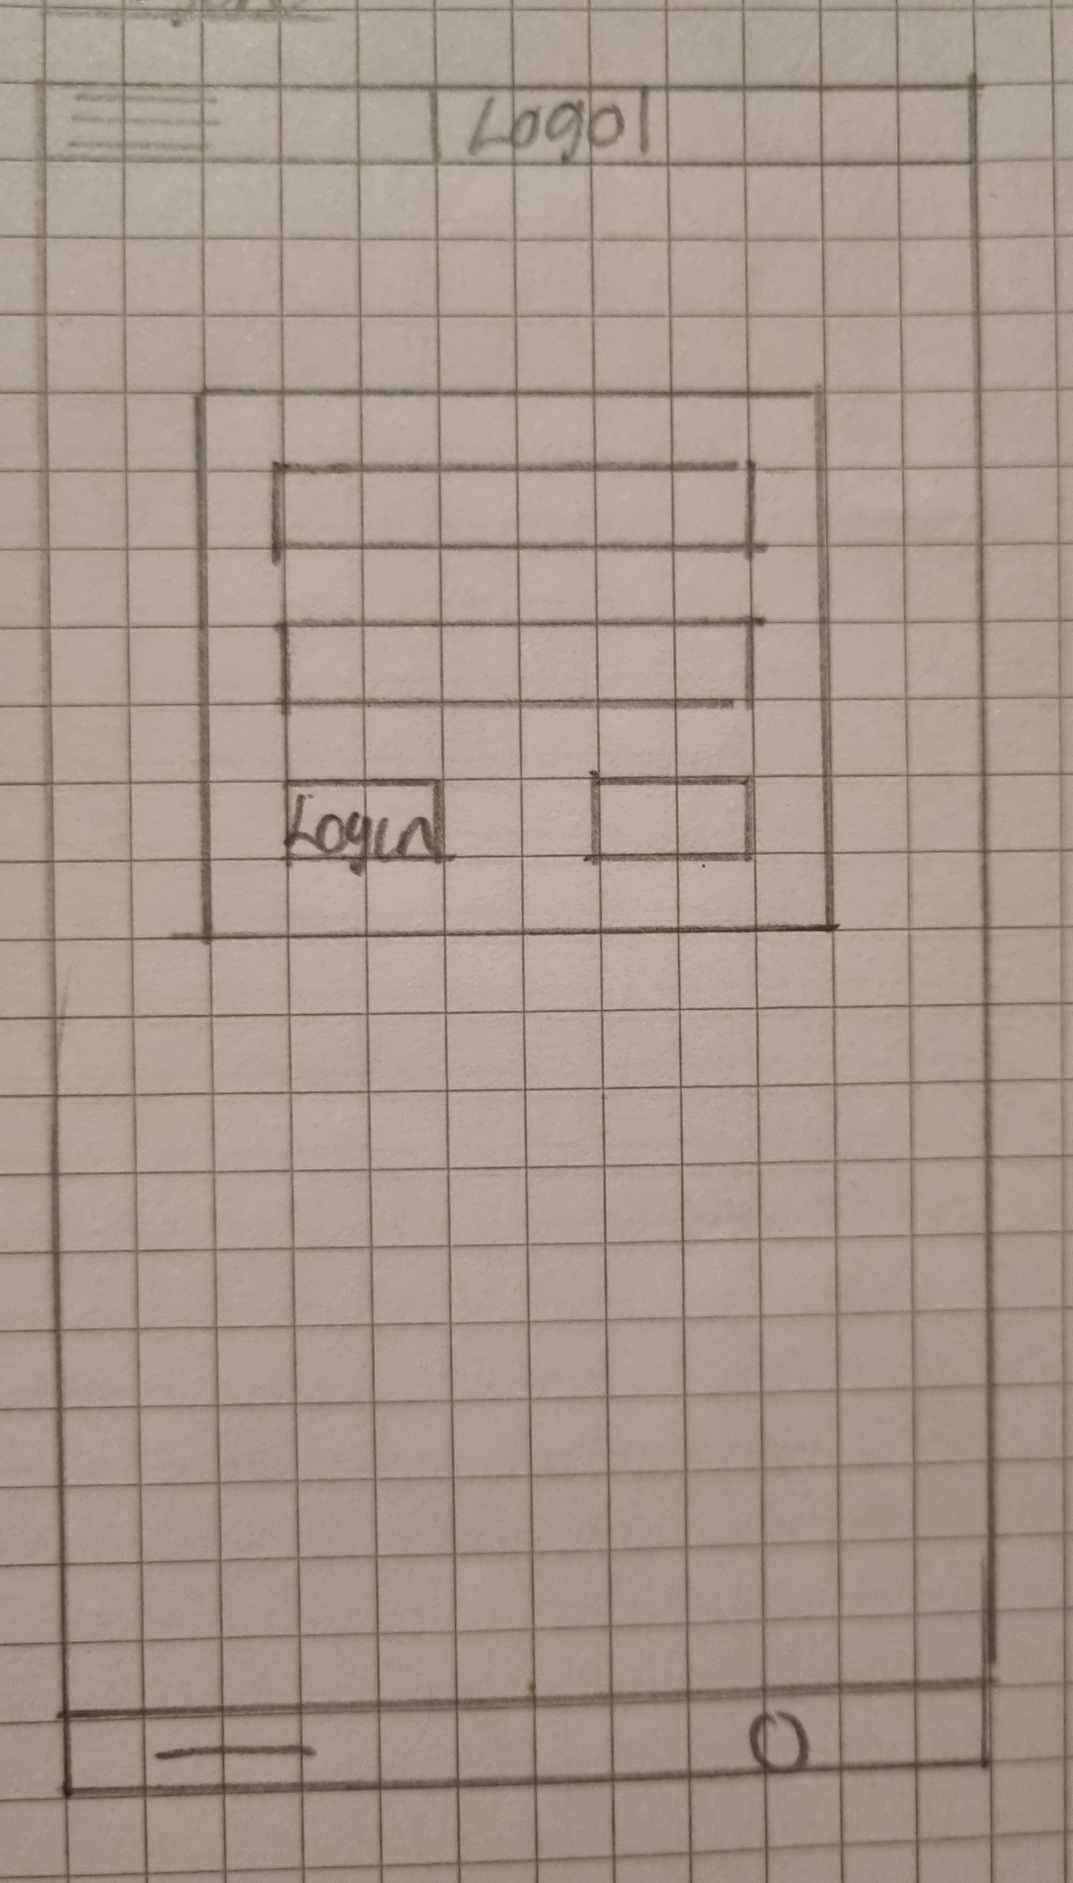 Logo
Login